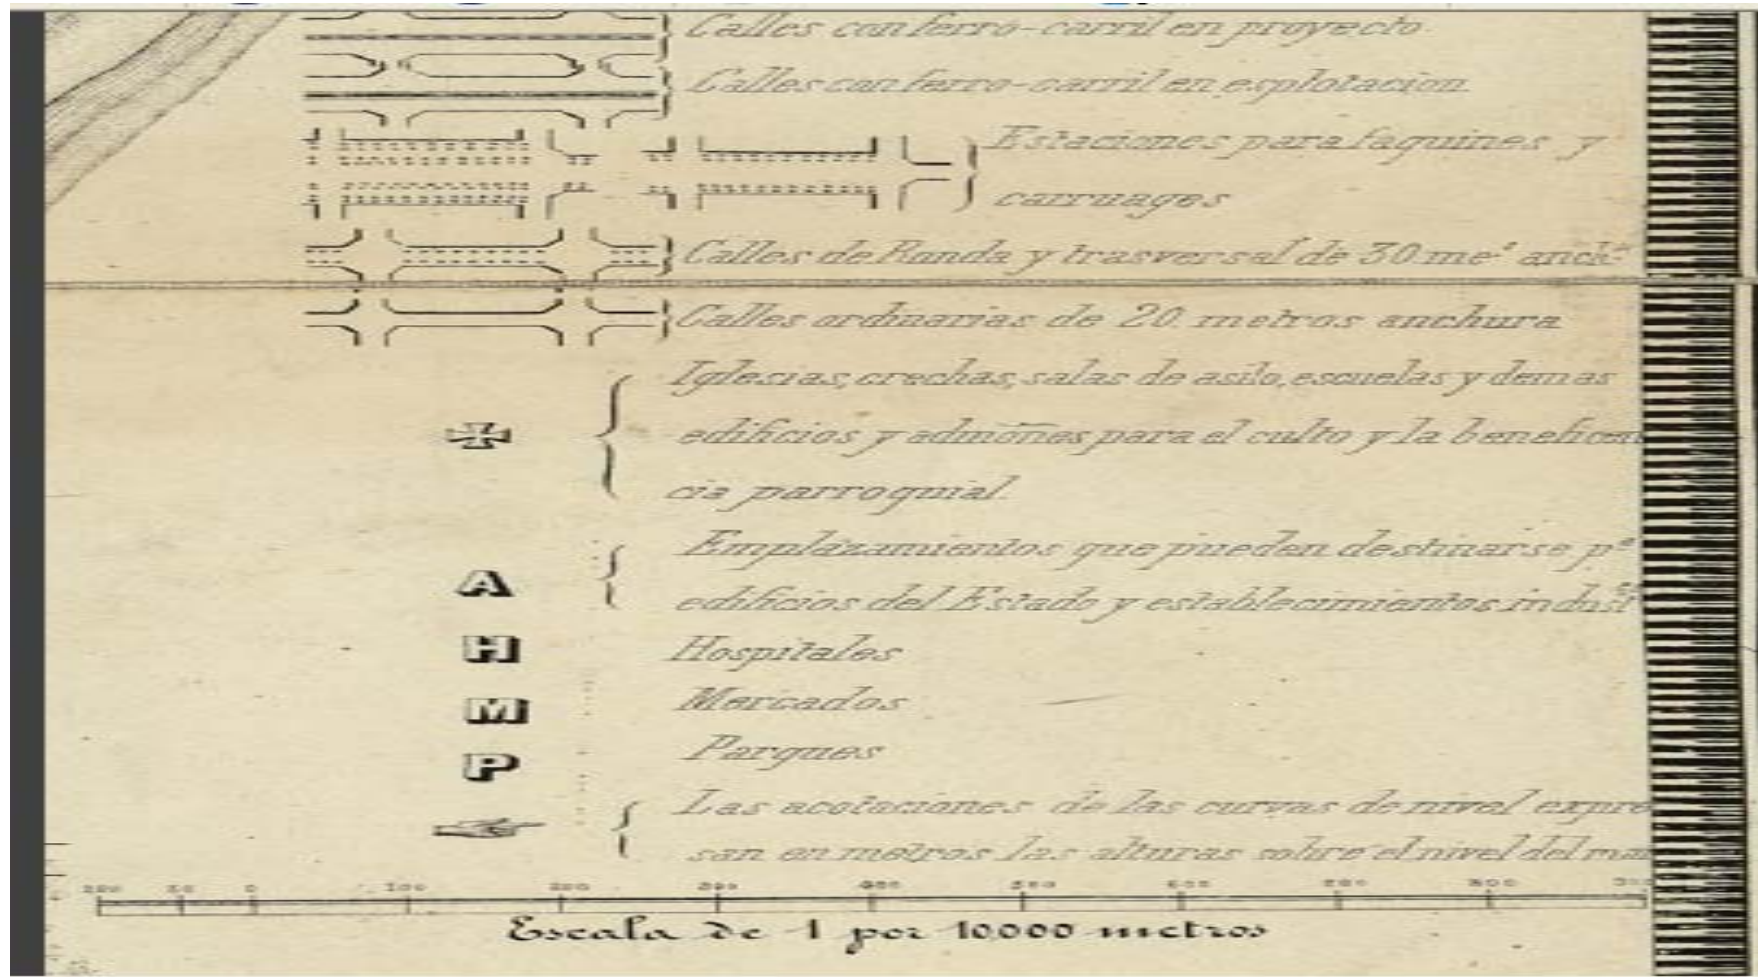 Calles con ferro-carril en proyecto
Calles con ferro-carril en esplotacion.
Estaciones para faquines y
carruages
Calles de Ronda y trasversal de 30 me.s anch.
Calles ordinarias de 20. metros anchura
Iglesias, crechas, salas de asilo, escuelas y demas
edificios y admones para el culto y la beneficen
cia parroquial.
Emplazamientos que pueden destinarse p.a
A
edificios del Estado y establecimientos indust
H Hospitales
M Mercados
P Parques
Las acotaciones de las curvas de nivel expre
san en metros las alturas sobre el nivel del mar
100 50 0 100 200 300 400 500 600 700 800
Escala de 1 por 10.000 metros